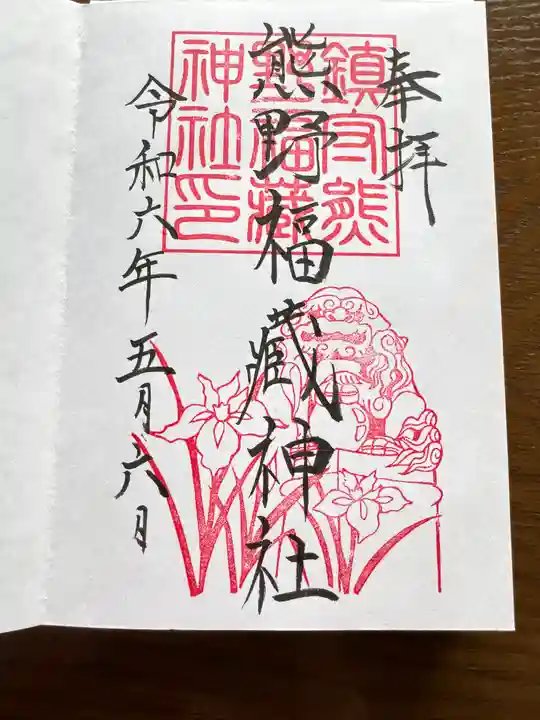 奉拝
熊野福蔵神社
令和六年五月六日
鎮守熊
野福蔵
神社印